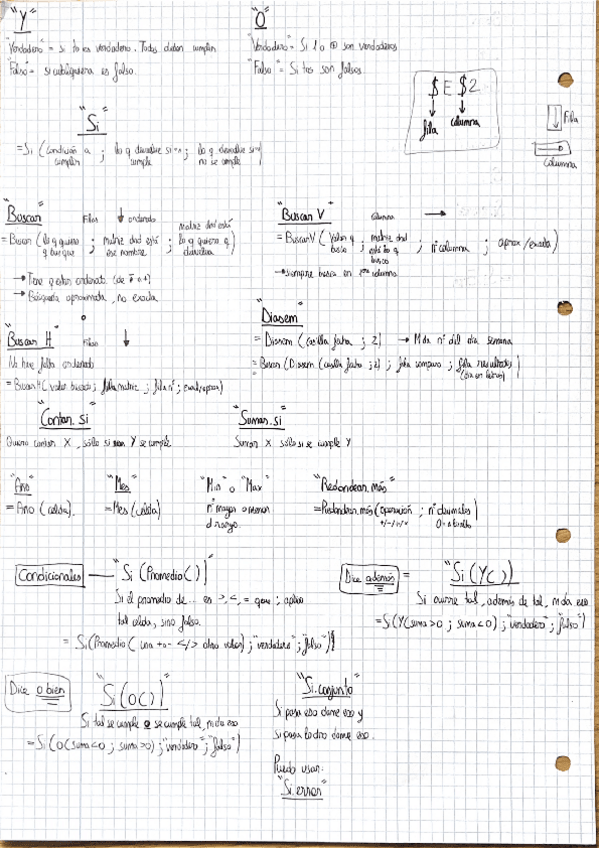 "Y"
"Verdadero" = Si to es verdadero. Todas deben cumplir
"Falso" = si cualquiera es falso.
"O"
"Verdadero" = Si 1 o ⊕ son verdaderos
"Falso" = Si tos son falsos
$E$2
fila columna
Fila
Columna
"Si"
= Si (condición a cumplir ; lo q devuelve si se cumple ; lo q devuelve si no se cumple)
"Buscar" Filas ordenado
= Buscar (lo q quiero q busque ; matriz dnd está ese nombre ; matriz dnd está lo q quiero q devuelva)
→ Tiene q estar ordenado.
→ Búsqueda aproximada, no exacta.
"Buscar V" Columna
= BuscarV (valor q busco ; matriz dnd está lo q busco ; nº columna ; aprox/exacta)
→ siempre busca en 1ªra columna
"Buscar H" Filas
No hace falta ordenado
= BuscarH (valor buscado ; matriz ; fila nº ; exact/aprox)
"Diasem"
= Diasem (casilla fecha ; 2) → M da nº del día semana
= Buscar (Diasem (casilla fecha ; 2) ; fila comparo ; fila resultados)
"Contar.si"
Quiero contar X, sólo si Y se cumple
"Sumar.si"
Sumar X sólo si se cumple Y
"Año"
= Año (celda).
"Mes"
= Mes (celda)
"Min" o "Max"
nº mayor o menor
d rango.
"Redondear.más"
= Redondear.más (operación ; nº decimales)
+/-/·/÷
Condicionales — "Si (Promedio())"
Si el promedio de... es >, <, = que ; aplico
tal celda, sino falso.
= Si (Promedio ( una +o- </> otro valor) ; "verdadero" ; "falso")
Dice además = "Si(Y())"
Si ocurre tal, además de tal, m da eso
= Si (Y(suma>0 ; suma<0) ; "verdadero" ; "Falso")
Dice o bien "Si(O())"
Si tal se cumple o se cumple tal, m da eso
= Si (O(suma<0 ; suma>0) ; "verdadero" ; "falso")
"Si.conjunto"
Si pasa eso dame eso y
si pasa lo otro dame eso.
Puedo usar:
"Si.error"